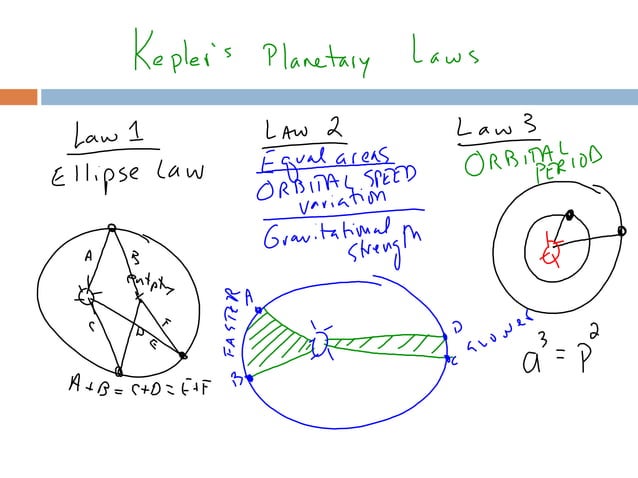 Kepler's Planetary Laws
Law 1
Ellipse Law
A
B
C
D
E
F
A+B = C+D = E+F
LAW 2
Equal areas
ORBITAL SPEED
variation
Gravitational
strength
FASTER
A
B
D
C
SLOWER
Law 3
ORBITAL
PERIOD
a³ = p²